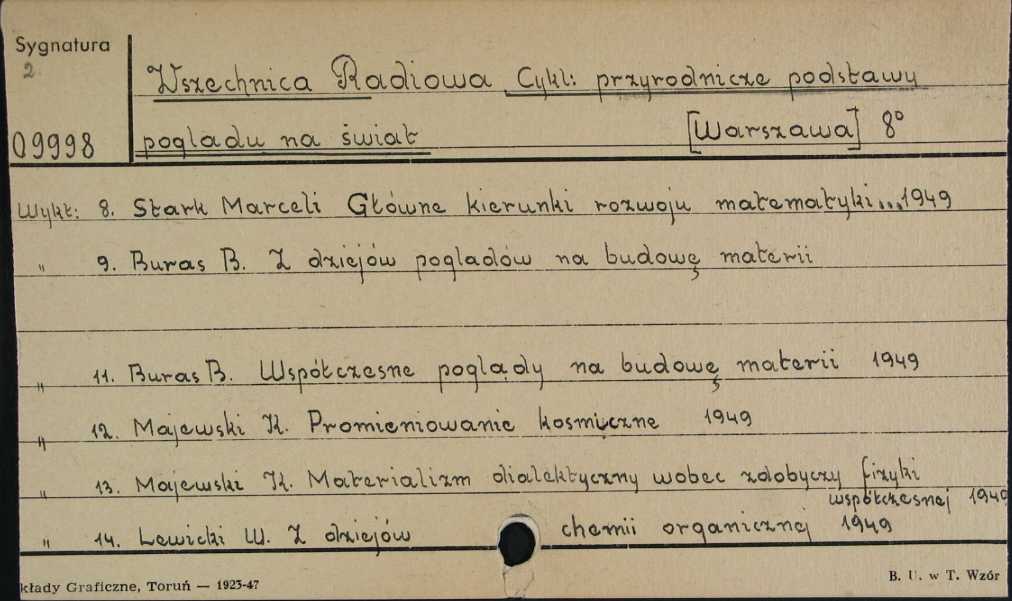 Sygnatura
2
09998
Wszechnica Radiowa Cykl: przyrodnicze podstawy
pogladu na świat [Warszawa] 8°
Wykł: 8. Stark Marceli Główne kierunki rozwoju matematyki...1949
" 9. Buras B. Z dziejów poglądów na budowę materii
" 11. Buras B. Współczesne poglądy na budowę materii 1949
" 12. Majewski K. Promieniowanie kosmiczne 1949
" 13. Majewski K. Materializm dialektyczny wobec zdobyczy fizyki
współczesnej 1949
" 14. Lewicki W. Z dziejów chemii organicznej 1949
kłady Graficzne, Toruń — 1925-47
B. U. w T. Wzór